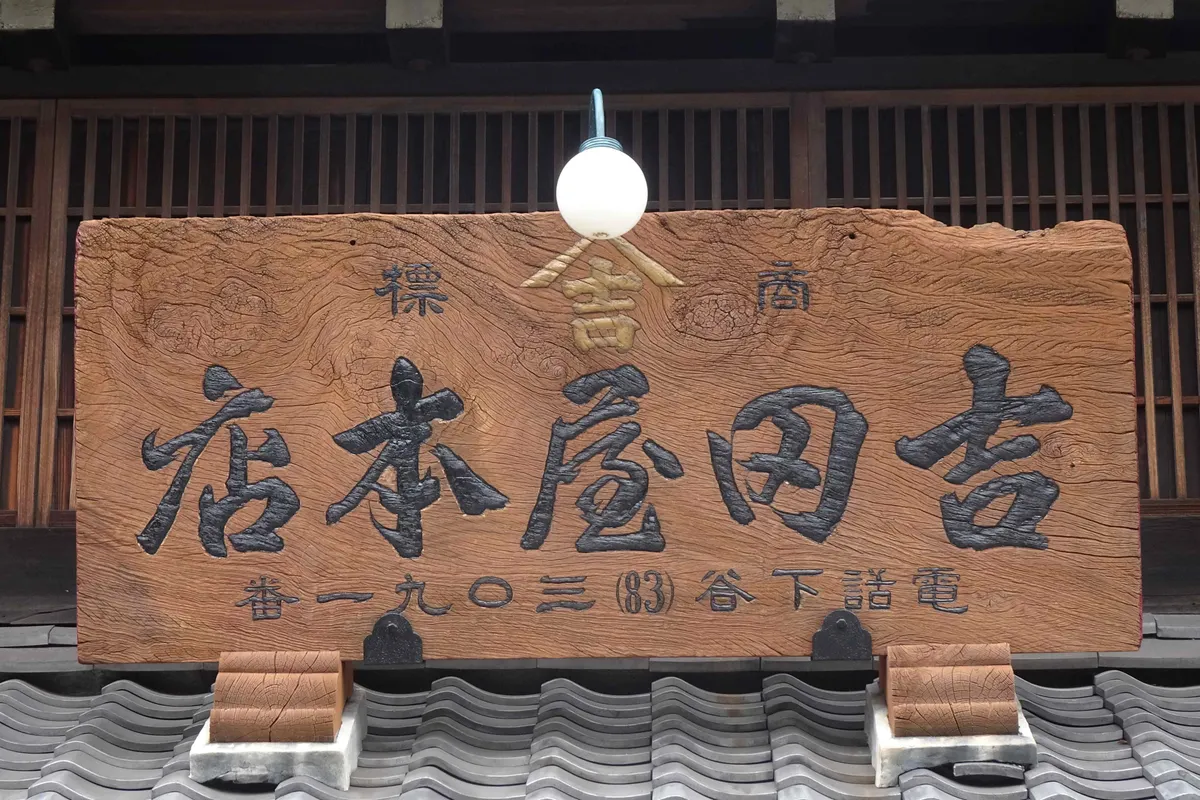 商吉標
吉田屋本店
電話下谷(83)三〇九一番